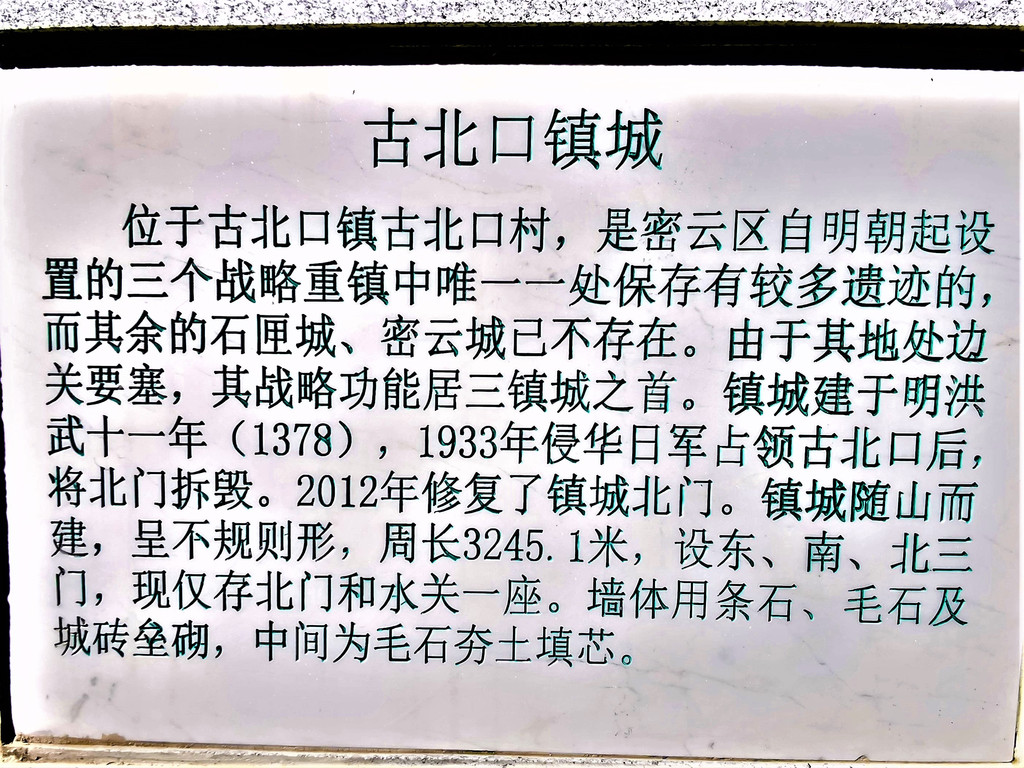 古北口镇城
位于古北口镇古北口村，是密云区自明朝起设
置的三个战略重镇中唯一一处保存有较多遗迹的，
而其余的石匣城、密云城已不存在。由于其地处边
关要塞，其战略功能居三镇城之首。镇城建于明洪
武十一年（1378），1933年侵华日军占领古北口后，
将北门拆毁。2012年修复了镇城北门。镇城随山而
建，呈不规则形，周长3245.1米，设东、南、北三
门，现仅存北门和水关一座。墙体用条石、毛石及
城砖垒砌，中间为毛石夯土填芯。